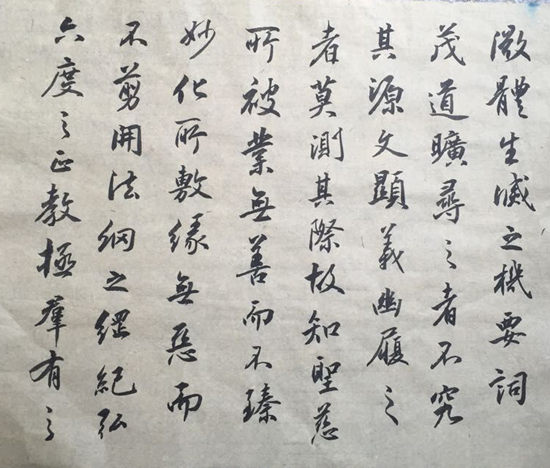 微體生滅之機要詞
茂道曠尋之者不究
其源文顯義幽履之
者莫測其際故知聖慈
所被業無善而不臻
妙化所敷緣無惡而
不剪開法網之綱紀弘
六度之正教極群有之